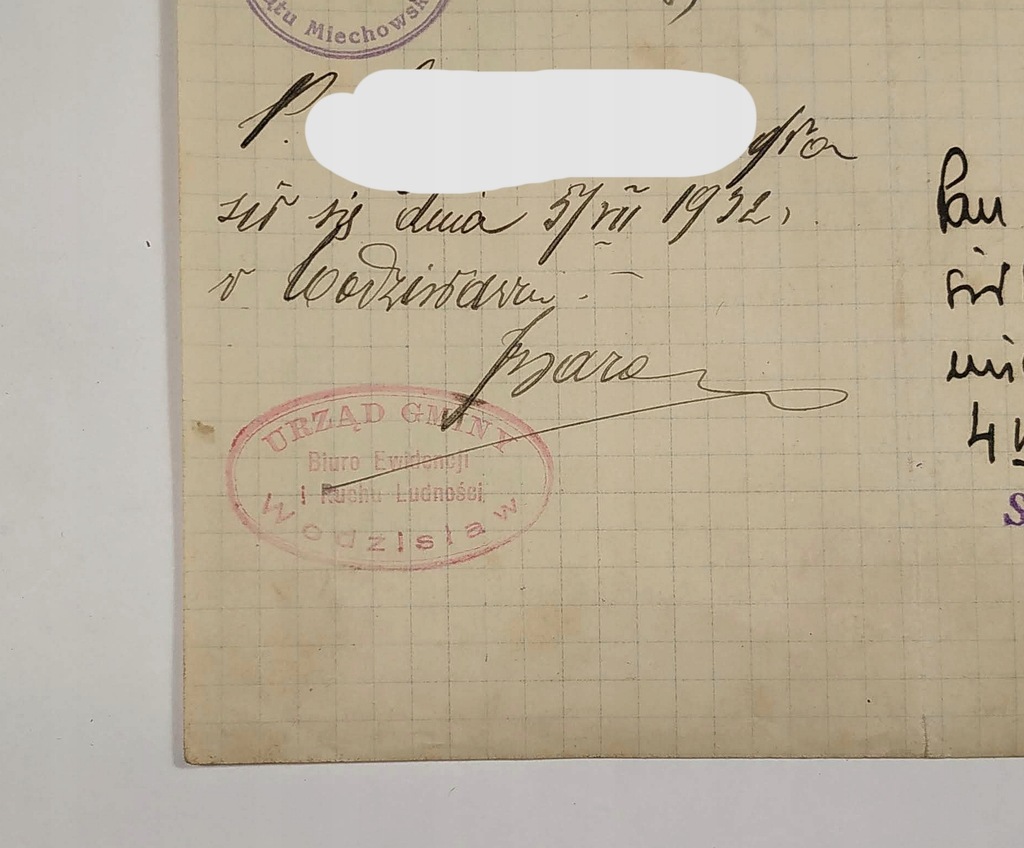 ątu Miechowsk
P.
zgło
sił się dnia 5/VII 1932,
w Wodzisławiu.
URZĄD GMINY
Biuro Ewidencji
i Ruchu Ludności
Wodzisław
Pan
sił
4